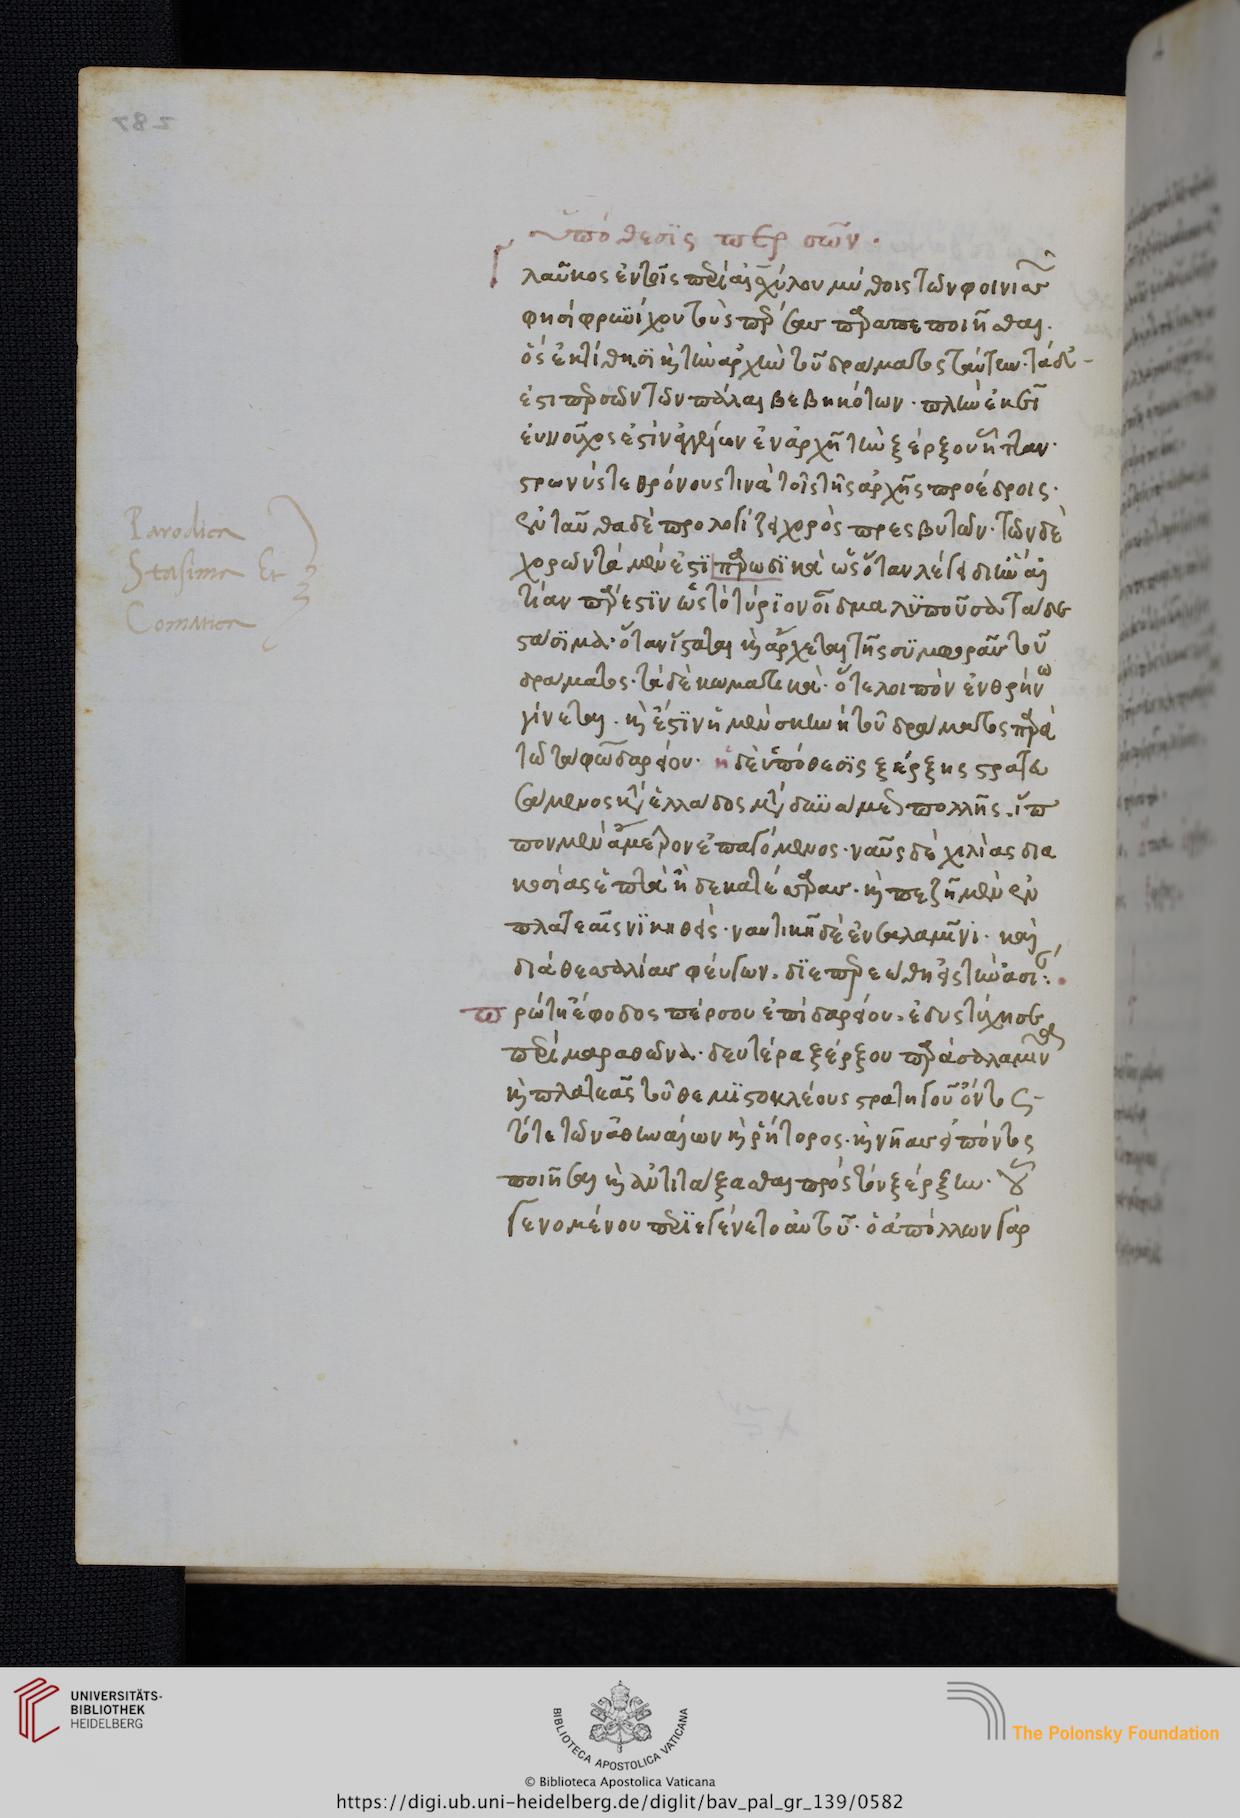 ὑπόθεσις περσῶν.
Γλαῦκος ἐν τοῖς περὶ αἰσχύλου μύθοις τῶν φοινισσῶν
φησὶ φρυνίχου τοὺς πέρσας παραπεποιῆσθαι.
ὃς ἐκτίθησι καὶ τὴν ἀρχὴν τοῦ δράματος ταύτην. τάδ'
ἐστὶ περσῶν τῶν πάλαι βεβηκότων. πλὴν ἐκεῖ
εὐνοῦχος ἐστὶν ἀγγέλλων ἐν ἀρχῇ τὴν ξέρξου ἧτταν.
στρωνύς τε θρόνους τινὰ τοῖς τῆς ἀρχῆς προέδροις.
ἐνταῦθα δὲ προλογίζει χορὸς πρεσβυτῶν. τῶν δὲ
χορῶν τὰ μέν ἐστι παρῳδικὰ ὡς ὅταν λέγει δι' ἣν αἰ
τίαν πάρεστιν ὡς τὸ τύριον οἶδμα λιποῦσα. τὰ δὲ
στάσιμα. ὅταν ἵσταται καὶ ἄρχεται τῆς συμφορᾶς τοῦ
δράματος. τὰ δὲ κωματικά. ὅτε λοιπὸν ἐν θρήνῳ
γίνεται. καὶ ἔστιν ἡ μὲν σκηνὴ τοῦ δράματος παρὰ
τῷ τάφῳ δαρείου. ἡ δὲ ὑπόθεσις ξέρξης στρατευ
σάμενος κατὰ ἑλλάδος μετὰ δυνάμεως πολλῆς. ἵπ
πον μὲν ἄμετρον ἐπαγόμενος. ναῦς δὲ χιλίας δια
κοσίας ἑπτὰ ἢ δεκατέσσαρας. καὶ πεζῇ μὲν ἐν
πλατεαῖς νικηθεὶς. ναυτικῇ δὲ ἐν σαλαμῖνι. καὶ
διὰ θεσσαλίας φεύγων. διεπεραιώθη εἰς τὴν ἀσίαν:
πρώτη ἔφοδος πέρσου ἐπὶ δαρείου. ἐδυστύχησε
περὶ μαραθῶνα. δευτέρα ξέρξου παρὰ σαλαμῖνα
καὶ πλατεὰς τοῦ θεμιστοκλέους στρατηγοῦ ὄντος
τότε τῶν ἀθηναίων καὶ ῥήτορος. καὶ νῆας εἰπόντος
ποιῆσαι καὶ ἀντιτάξασθαι πρὸς τὸν ξέρξην. οὗ
γενομένου περιεγένετο αὐτοῦ. ὁ ἀπόλλων γὰρ
Parodica
Stasima Et
Commatica
UNIVERSITÄTS-
BIBLIOTHEK
HEIDELBERG
BIBLIOTECA APOSTOLICA VATICANA
The Polonsky Foundation
© Biblioteca Apostolica Vaticana
https://digi.ub.uni-heidelberg.de/diglit/bav_pal_gr_139/0582